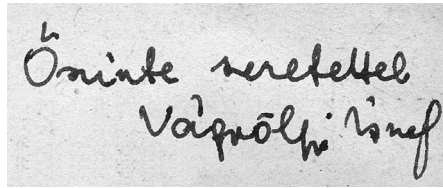 Őszinte szeretettel
Vágvölgyi József